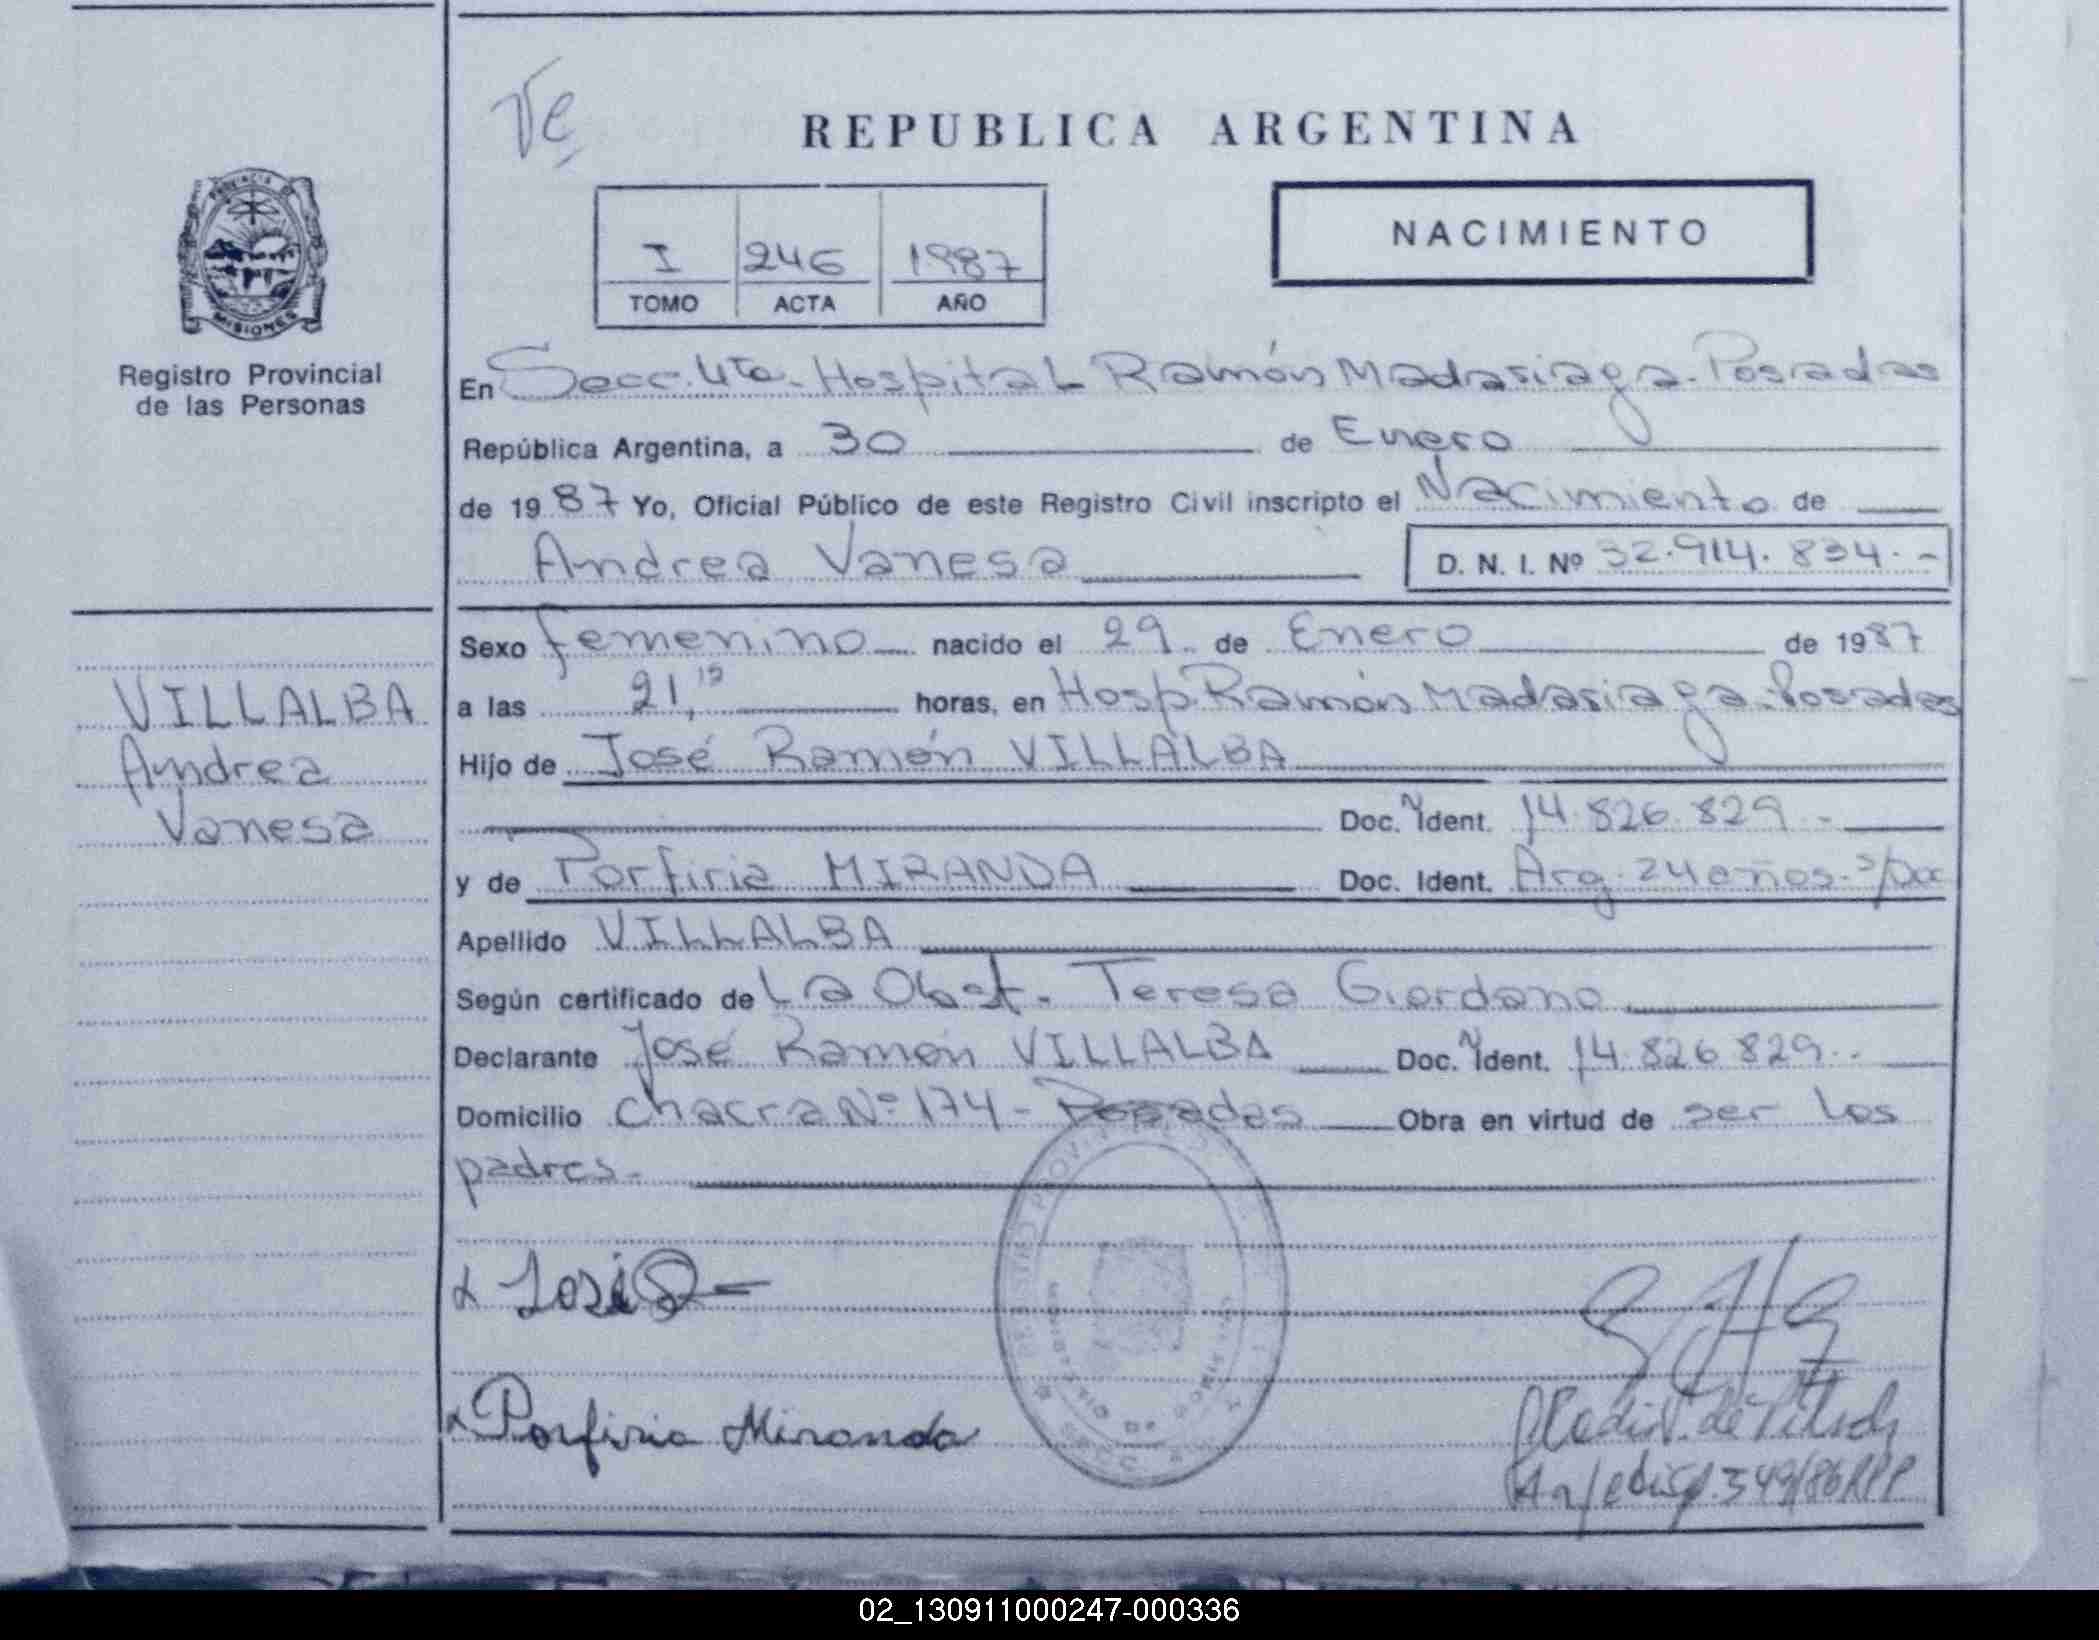 Ve
REPUBLICA ARGENTINA
NACIMIENTO
I 246 1987
TOMO ACTA AÑO
PROVINCIA DE
MISIONES
Registro Provincial
de las Personas
En Secc. 4ta. Hospital Ramón Madariaga - Posadas
República Argentina, a 30 de Enero
de 1987 Yo, Oficial Público de este Registro Civil inscripto el Nacimiento de
Andrea Vanesa D. N. I. Nº 32.914.834.-
Sexo femenino nacido el 29 de Enero de 1987
a las 21,15 horas, en Hosp. Ramón Madariaga - Posadas
Hijo de José Ramón VILLALBA
Doc. Ident. 14.826.829.-
y de Porfiria MIRANDA Doc. Ident. Arg. 24 años. s/Doc
Apellido VILLALBA
Según certificado de La Obst. Teresa Giordano
Declarante José Ramón VILLALBA Doc. Ident. 14.826.829.-
Domicilio chacra Nº 174 - Posadas Obra en virtud de ser los
padres.-
VILLALBA
Andrea
Vanesa
José
Porfiria Miranda
349/86 RPP
02_130911000247-000336